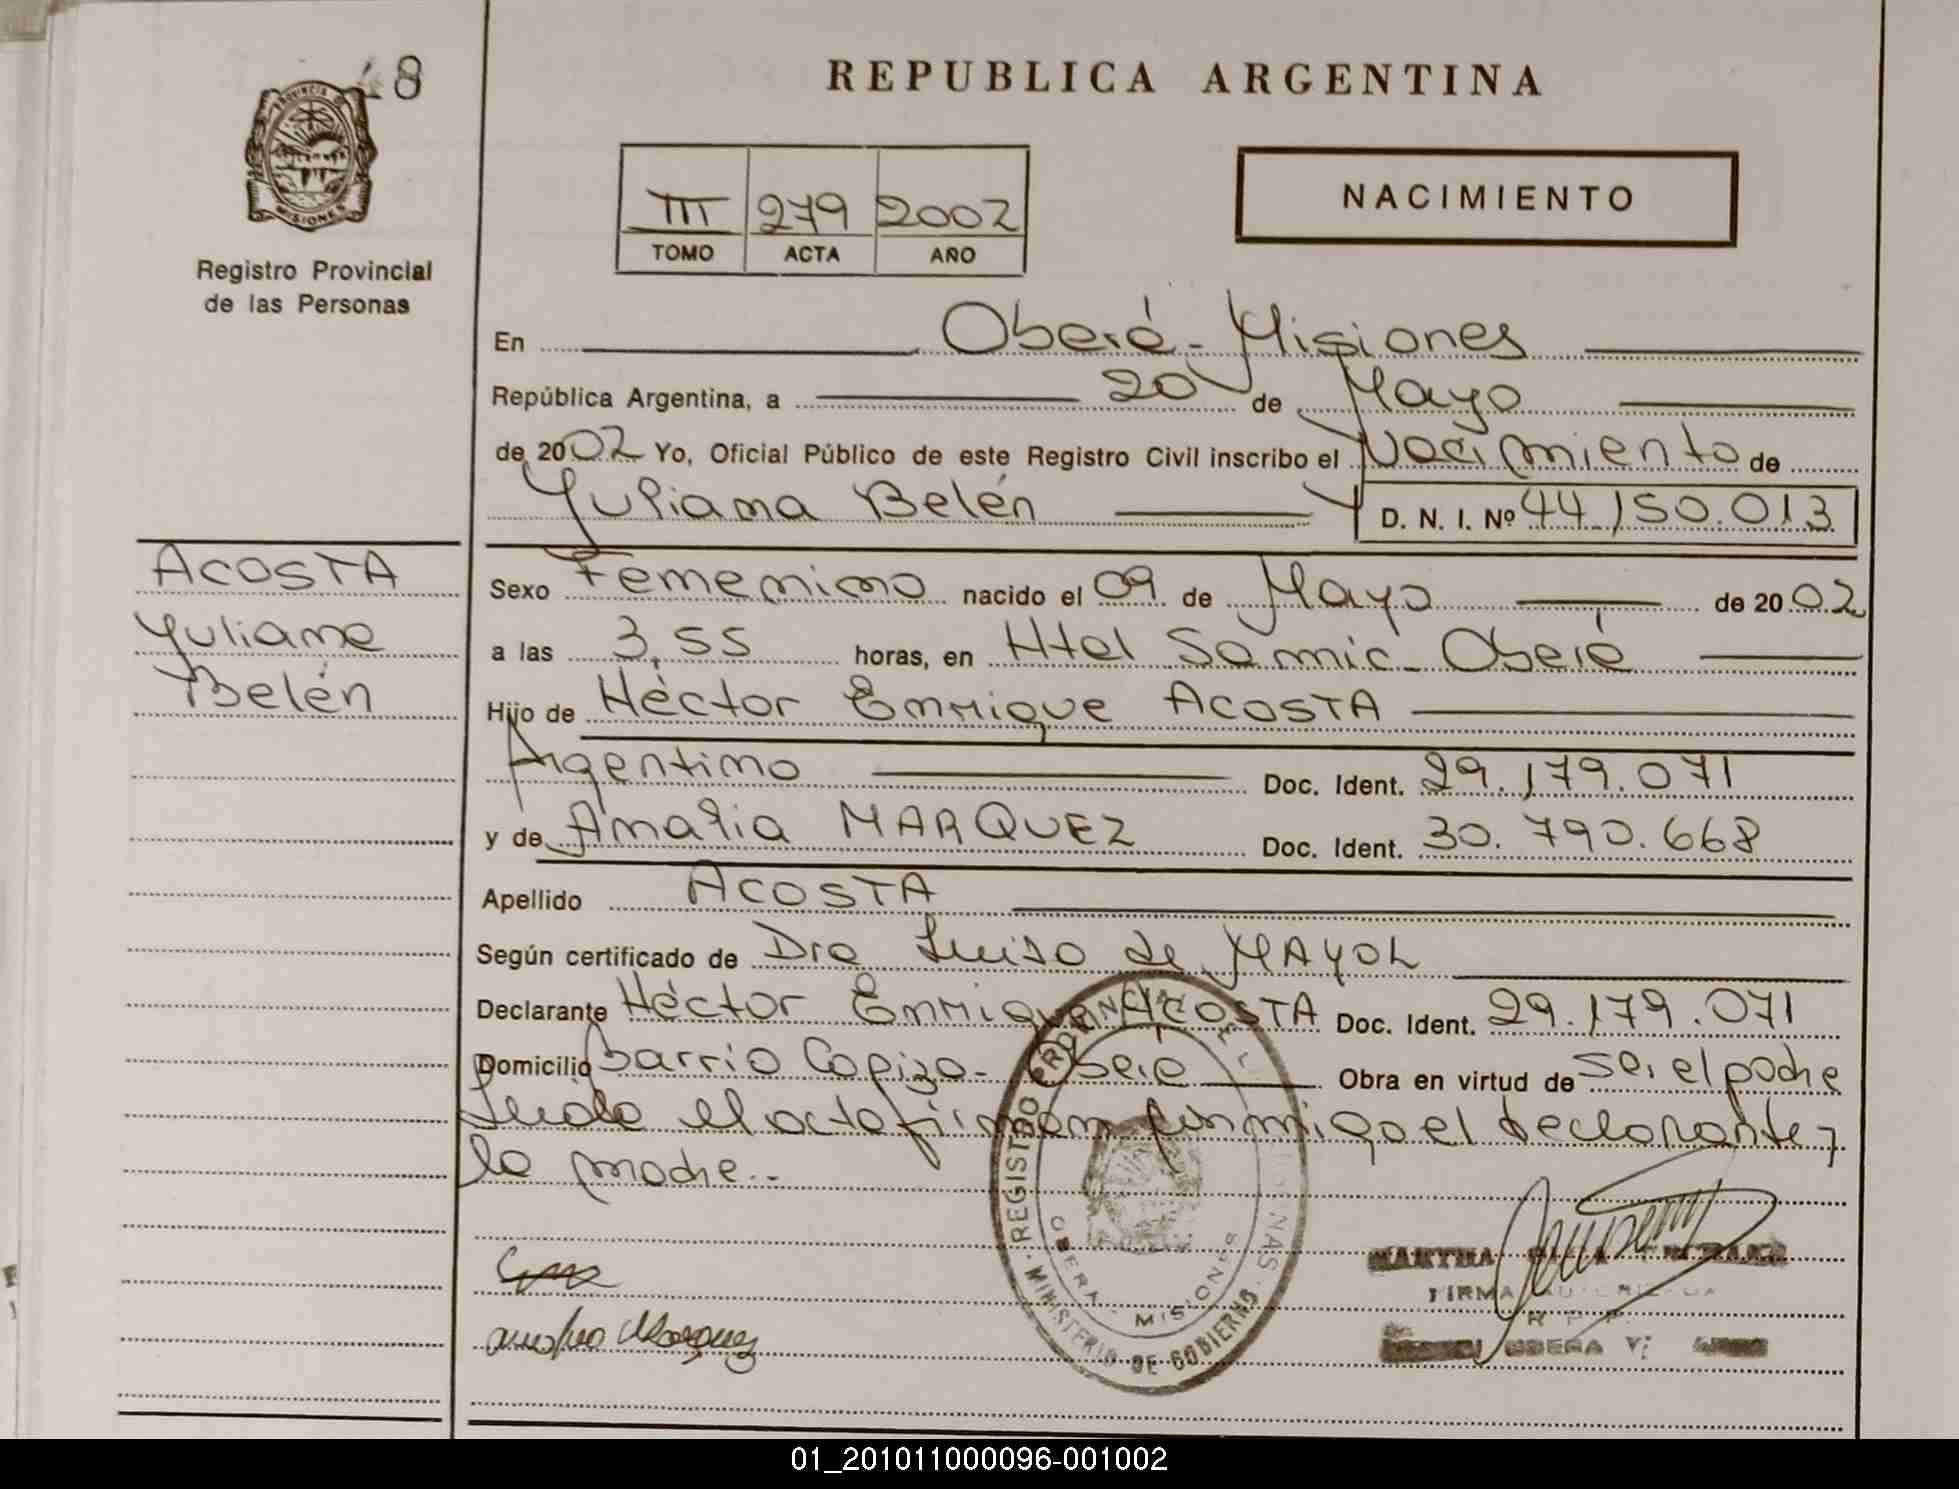 48
PROVINCIA DE
MISIONES
Registro Provincial
de las Personas
REPUBLICA ARGENTINA
III 279 2002
TOMO ACTA AÑO
NACIMIENTO
En Oberá - Misiones
República Argentina, a 20 de Mayo
de 2002 Yo, Oficial Público de este Registro Civil inscribo el Nacimiento de
Yuliana Belén D. N. I. Nº 44.150.013
ACOSTA
Yuliana
Belén
Sexo Femenino nacido el 09 de Mayo de 2002
a las 3,55 horas, en Htal Samic - Oberá
Hijo de Héctor Enrique ACOSTA
Argentino Doc. Ident. 29.179.071
y de Amalia MARQUEZ Doc. Ident. 30.790.668
Apellido ACOSTA
Según certificado de Dra Luisa de MAYOL
Declarante Héctor Enrique ACOSTA Doc. Ident. 29.179.071
Domicilio Barrio Copiza - Oberá Obra en virtud de ser el padre
Leida el acta firman conmigo el declarante y
la madre..
REGISTRO PROVINCIAL DE LAS PERSONAS
OBERA - MISIONES
MINISTERIO DE GOBIERNO
Marquez
MARTHA
FIRMA AUTORIZADA
R P P
OBERA
01_201011000096-001002